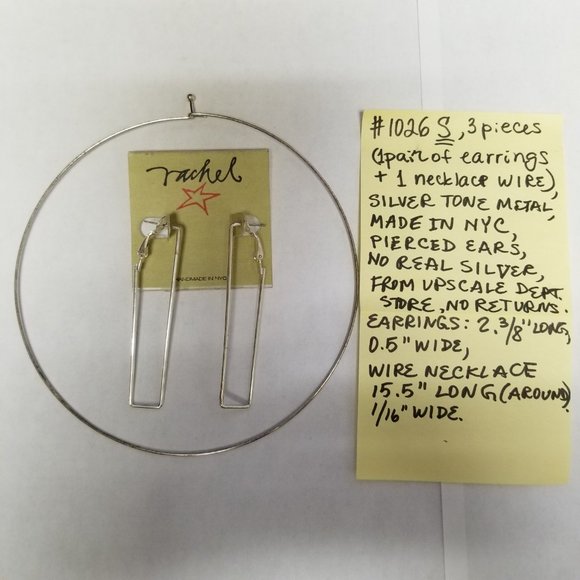 rachel
HANDMADE IN NYC
#1026 S, 3 pieces
(1 pair of earrings
+ 1 necklace WIRE),
SILVER TONE METAL,
MADE IN NYC,
PIERCED EARS,
NO REAL SILVER,
FROM UPSCALE DEPT.
STORE, NO RETURNS.
EARRINGS: 2.3/8" LONG,
0.5" WIDE,
WIRE NECKLACE
15.5" LONG (AROUND)
1/16" WIDE.